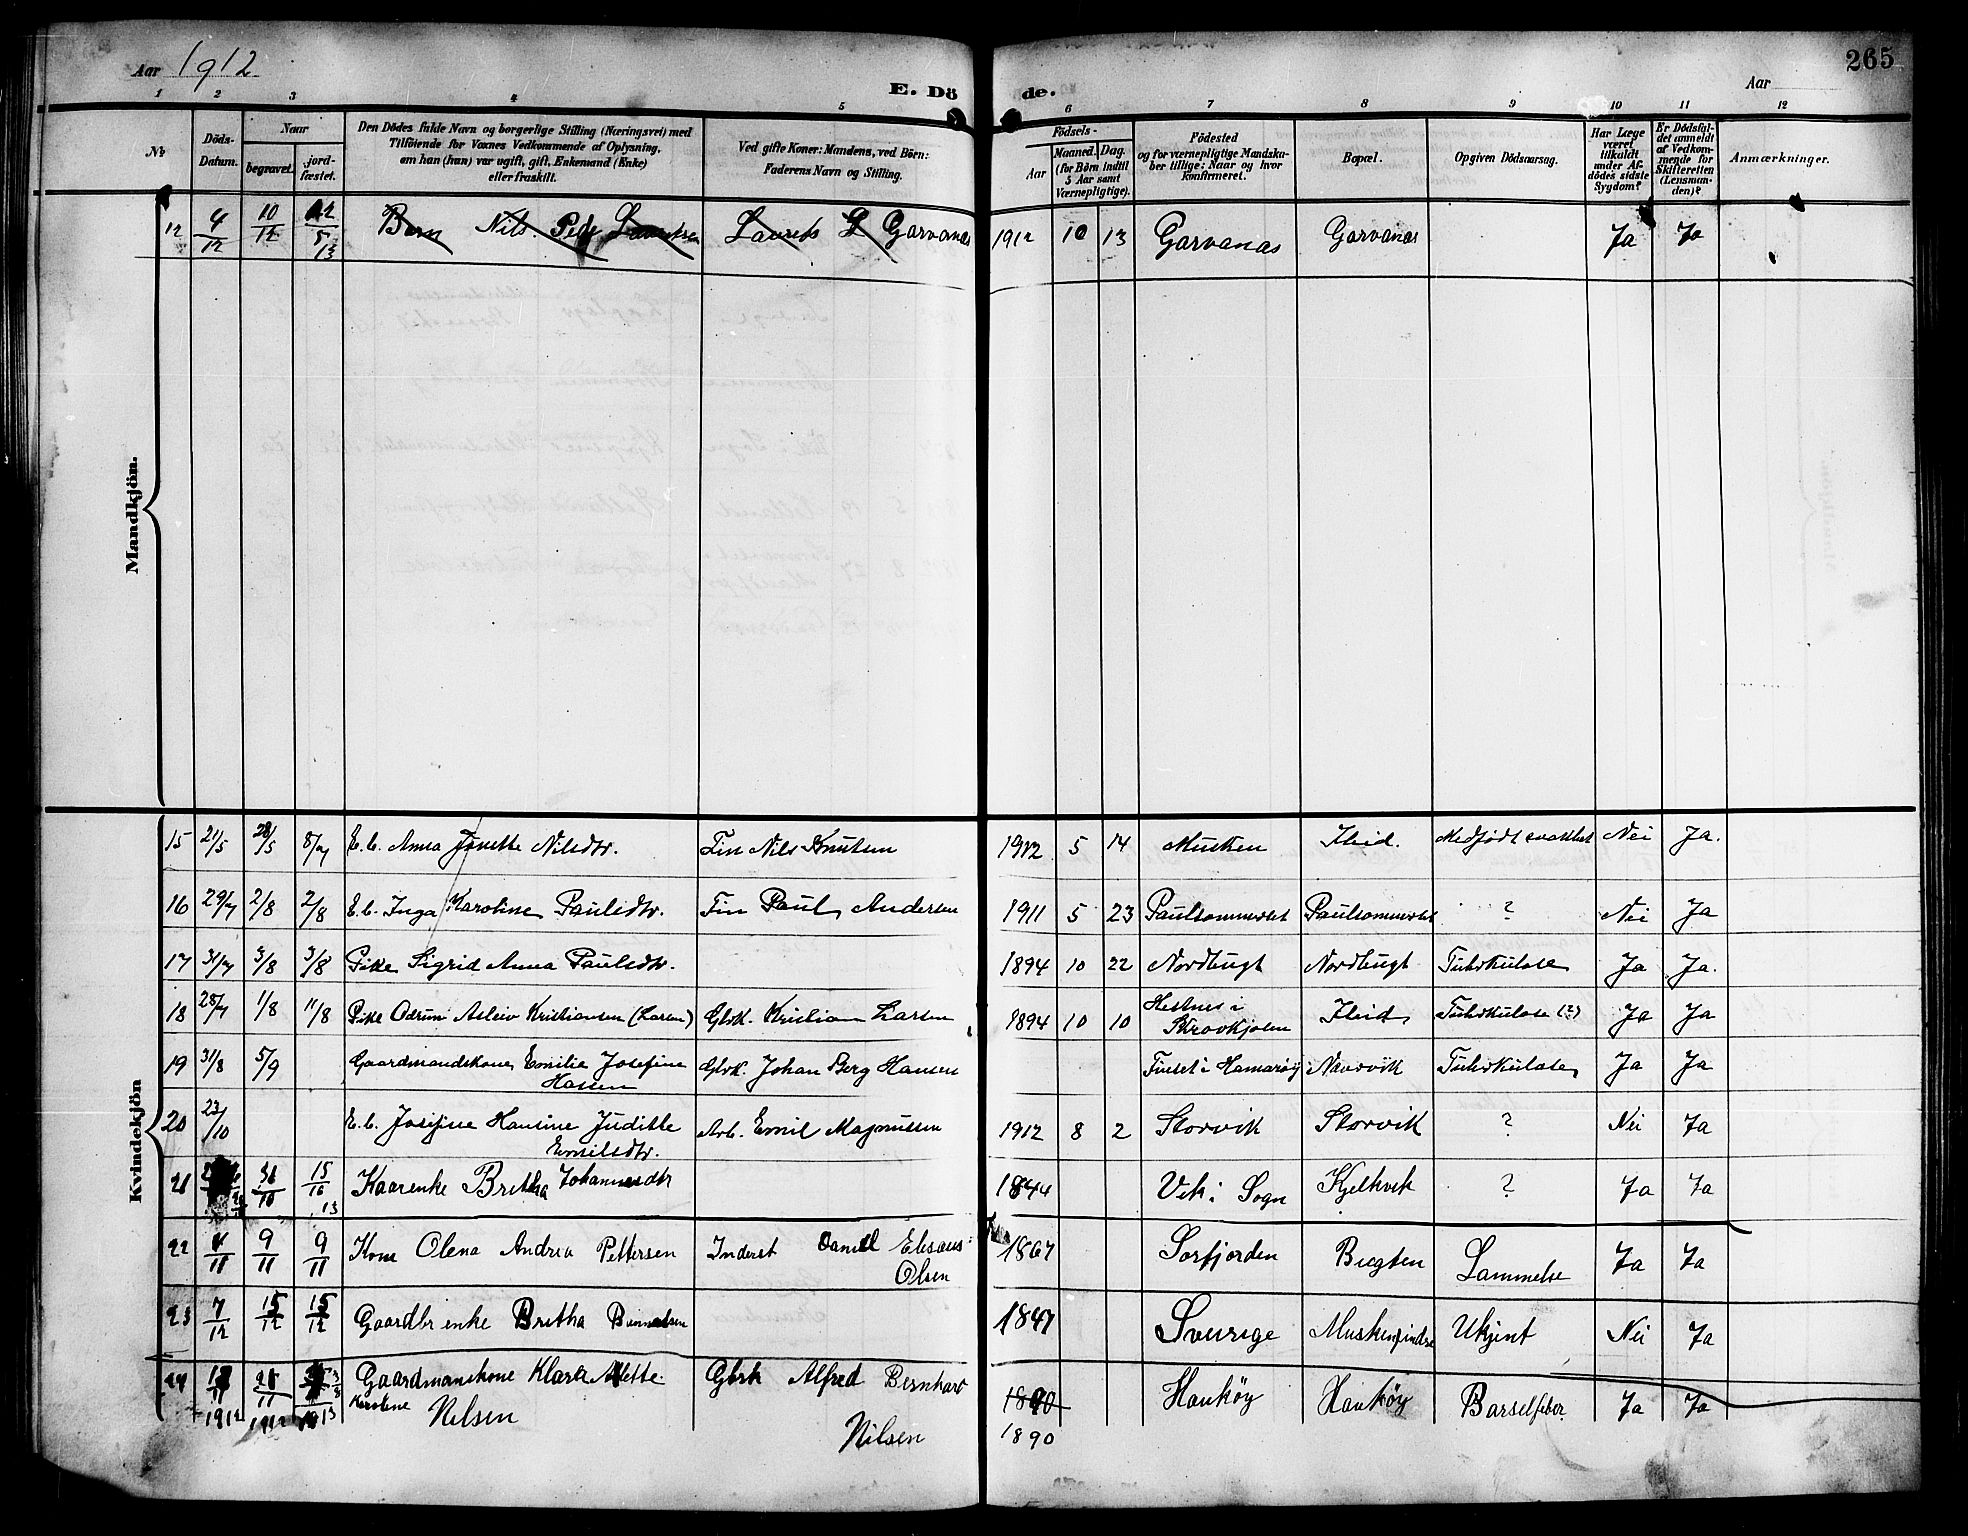 Aar 1912
E. Dö
de.
Aar
265
1 2 3 4 5 6 7 8 9 10 11 12
No
Döds-Datum.
Naar
begravet.
jord-fæstet.
Den Dödes fulde Navn og borgerlige Stilling (Næringsvei) med
Tilföiende for Voxnes Vedkommende af Oplysning,
om han (hun) var ugift, gift, Enkemand (Enke)
eller fraskilt.
Ved gifte Koner: Mandens, ved Börn:
Faderens Navn og Stilling.
Födsels-
Aar
Maaned. Dag.
(for Børn indtil
5 Aar samt
Værnepligtige).
Födested
og for værnepligtige Mandska-
ber tillige: Naar og hvor
konfirmeret.
Bopæl.
Opgiven Dödsaarsag.
Har Læge
været
tilkaldt
under Af-
dödes sidste
Sygdom?
Er Dödsfal-
det anmeldt
af Vedkom-
mende for
Skifteretten
(Lensman-
den)?
Anmærkninger.
Mandkjön.
12 4/12 10/12 Barn Nils Peder Lauritsen Laurits L Garvanas 1912 10 13 Garvanas Garvanas Ja Ja
Kvindekjön
15 21/5 28/5 8/7 E.b. Anna Jonette Nilsdtr. Fin Nils Knutsen 1912 5 14 Musken Ileid. Medfødt svakhet Nei Ja.
16 29/7 2/8 2/8 E.b. Inga Karoline Paulsdtr. Fin Paul Andersen 1911 5 23 Paulsommerset Paulsommerset ? Nei Ja
17 31/7 3/8 3/8 Pike Sigrid Anna Paulsdtr. 1894 10 22 Nordbugt Nordbugt Tuberkulose Ja Ja.
18 28/7 1/8 11/8 Pike Odrun Asleiv Kristiansen (Larsen) Gbrk. Kristian Larsen 1894 10 10 Hestnes i
Skrovkjosen Ileid Tuberkulose (?) Ja Ja
19 31/8 5/9 Gaardmandskone Emilie Josefine
Hansen Gbrk. Johan Berg Hansen Finset i Hamarøy Navrvik Tuberkulose Ja Ja
20 23/10 E.b. Josefine Hansine Juditte
Emilsdtr. Arb. Emil Magnussen 1912 8 2 Storvik Storvik ? Nei Ja
21 15/10 13 Kaarenke Britha Johannesdtr 1844 Vik i Sogn Kjelkvik ? Ja Ja
22 9/11 9/11 Kone Olena Andrea Pettersen Inderst Daniel Elisæus
Olsen 1867 Sorfjorden Bugten Lammelse Ja Ja
23 7/12 15/12 15/12 Gaardbr enke Britha 1847 Sverige Muskenfindre Ukjent Nei Ja
24 Gaardmanskone Klara Alette
Karoline Nilsen Gbrk Alfred Bernhard
Nilsen 1890 Haukøy Haukøy Barselfeber. Ja Ja
1912 1912 1913 1890